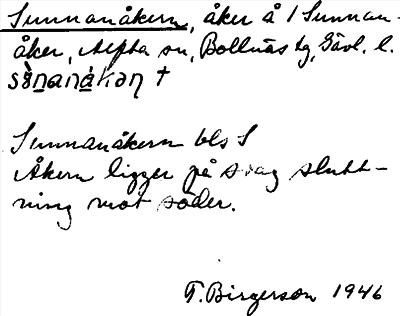 Sunnanåkern, åker å 1 Sunnan-
åker, Alfta sn, Bollnäs tg, Gävl. l.
Sunnanåkern bls S
Åkern ligger på svag slutt-
ning mot söder.
T. Birgerson 1946